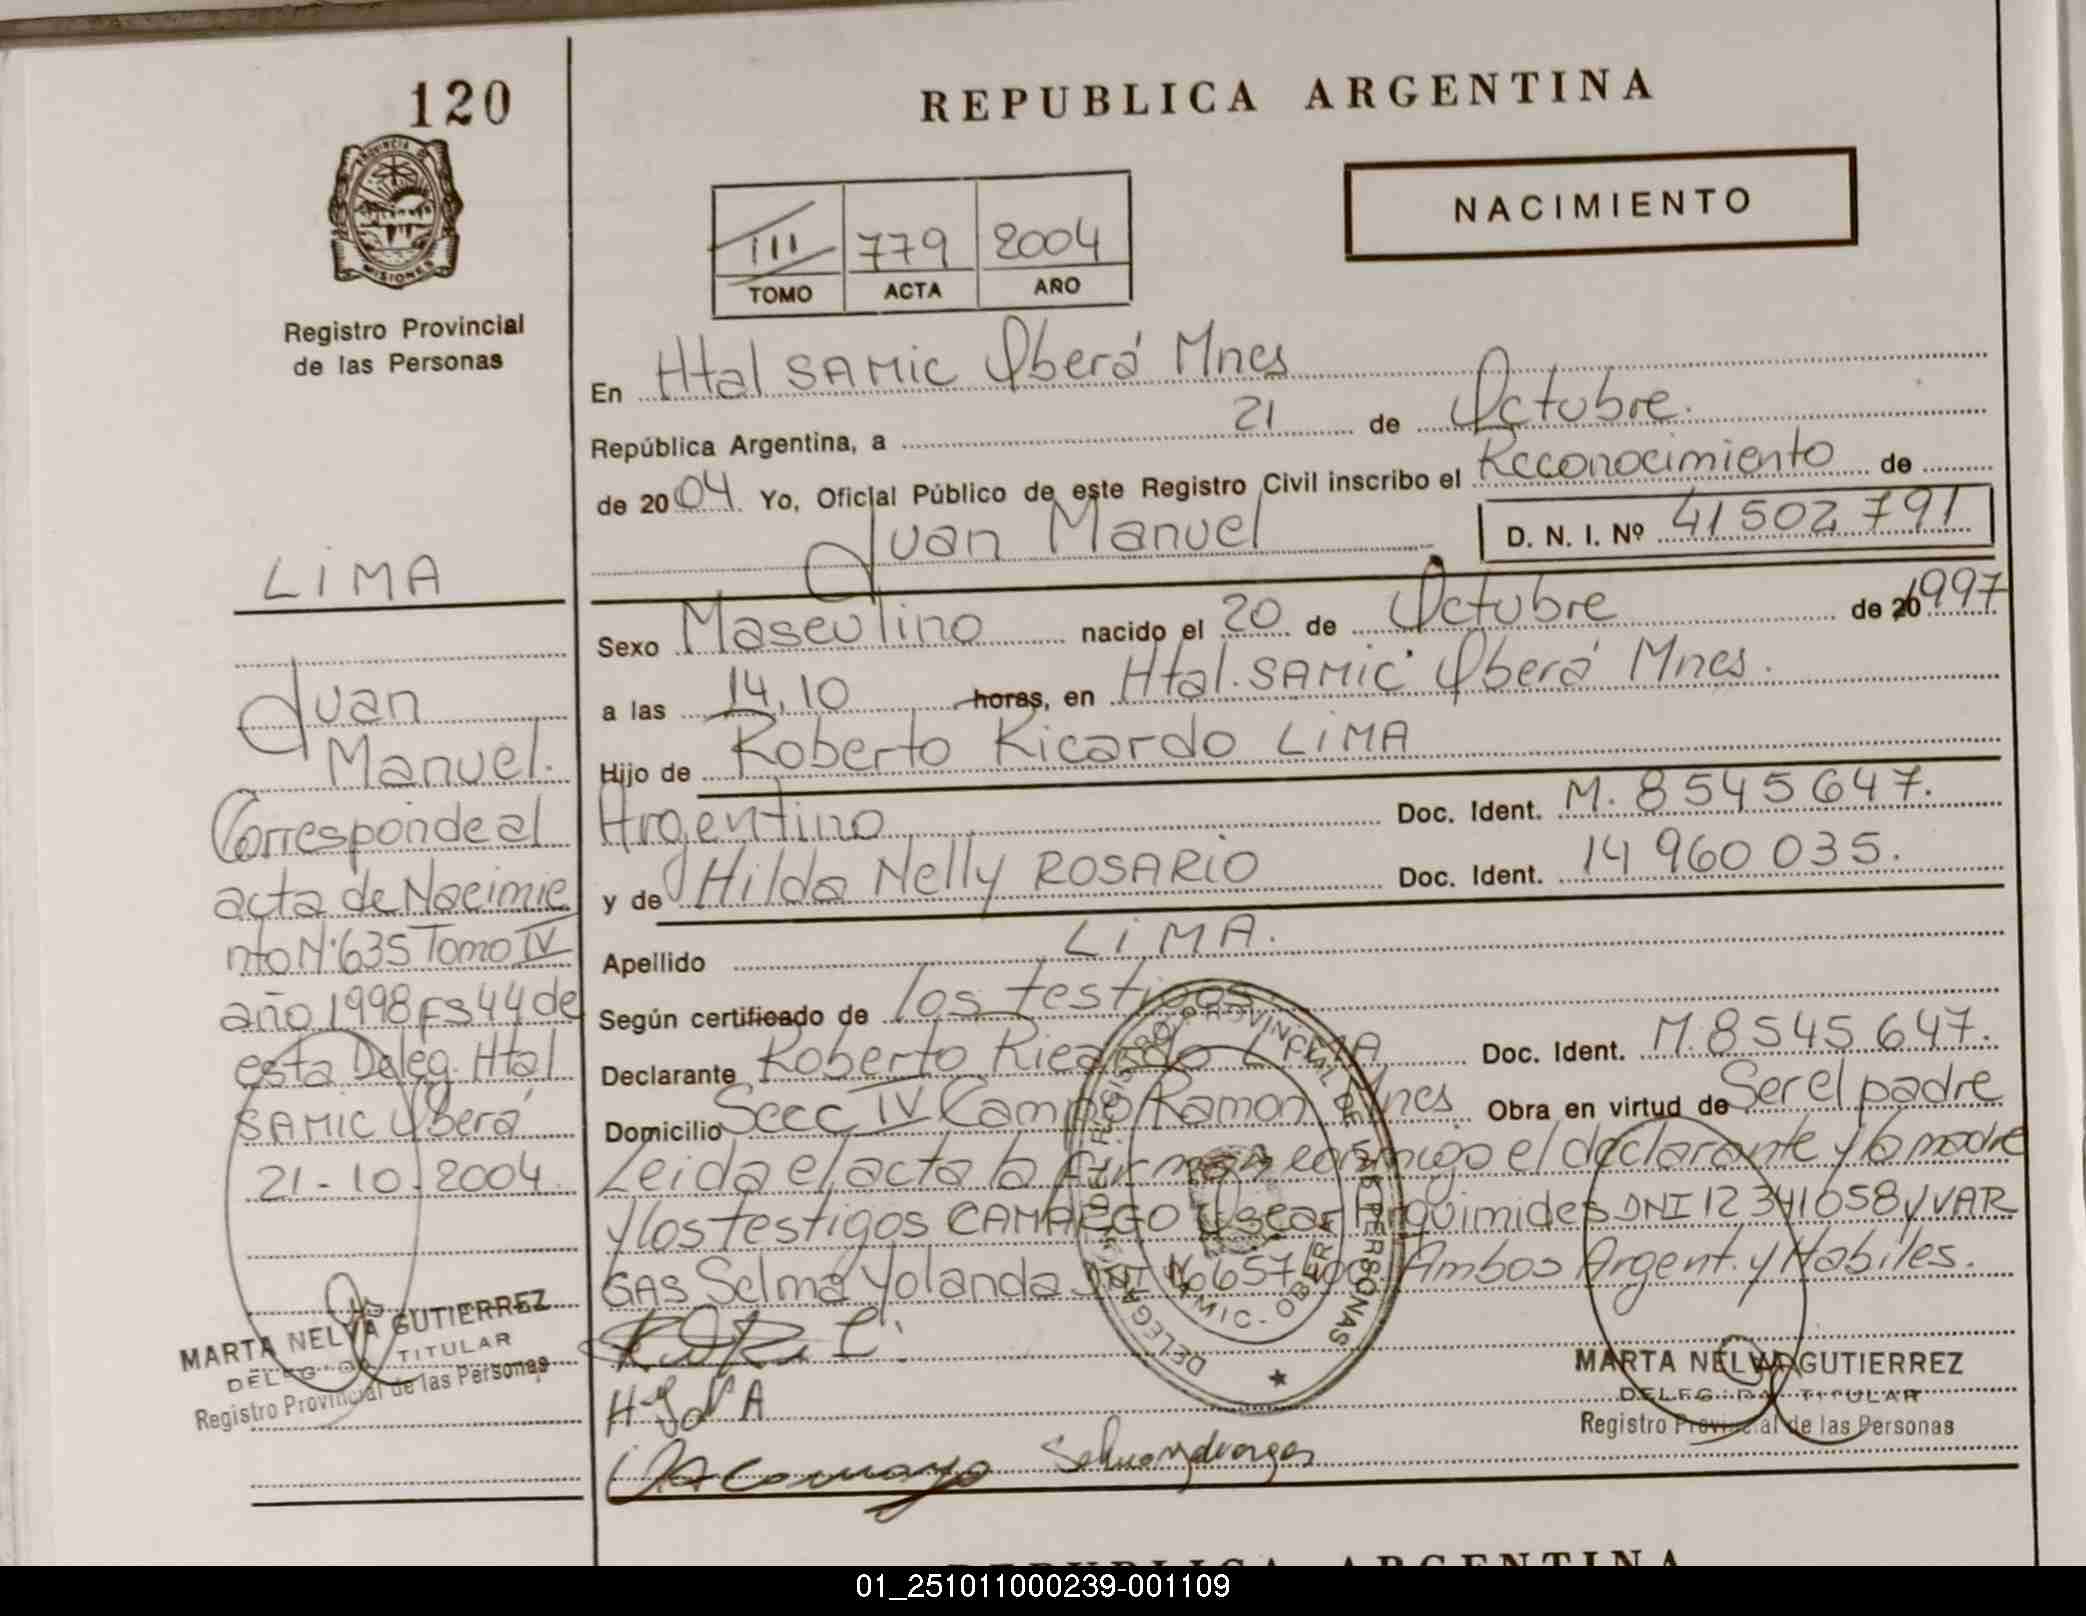 120
PROVINCIA DE
MISIONES
Registro Provincial
de las Personas
LIMA
Juan
Manuel.
Corresponde al
acta de Nacimie
nto Nº 635 Tomo IV
año 1998 Fs 44 de
esta Deleg. Htal
SAMIC Oberá
21-10-2004
MARTA NELVA GUTIERREZ
DELEGADA TITULAR
Registro Provincial de las Personas
REPUBLICA ARGENTINA
NACIMIENTO
III 779 2004
TOMO ACTA AÑO
En Htal SAMIC Oberá Mnes
República Argentina, a 21 de Octubre.
de 2004 Yo, Oficial Público de este Registro Civil inscribo el Reconocimiento de
Juan Manuel D. N. I. Nº 41502791
Sexo Masculino nacido el 20 de Octubre de 20 1997
a las 14,10 horas, en Htal. SAMIC Oberá Mnes.
Hijo de Roberto Ricardo LIMA
Argentino Doc. Ident. M. 8545647.
y de Hilda Nelly ROSARIO Doc. Ident. 14960035.
Apellido LIMA.
Según certificado de los testigos.
Declarante Roberto Ricardo LIMA Doc. Ident. M. 8545647.
Domicilio Secc IV Campo Ramon Mnes Obra en virtud de Ser el padre
Leida el acta la firman conmigo el declarante y la madre
y los testigos CAMARGO Oscar Arquimides DNI 12341058 y VAR
GAS Selma Yolanda DNI Ambos Argent. y Habiles.
DEL REGISTRO PROVINCIAL DE LAS PERSONAS
SAMIC - OBERA
MARTA NELVA GUTIERREZ
DELEGADA TITULAR
Registro Provincial de las Personas
REPUBLICA ARGENTINA
01_251011000239-001109